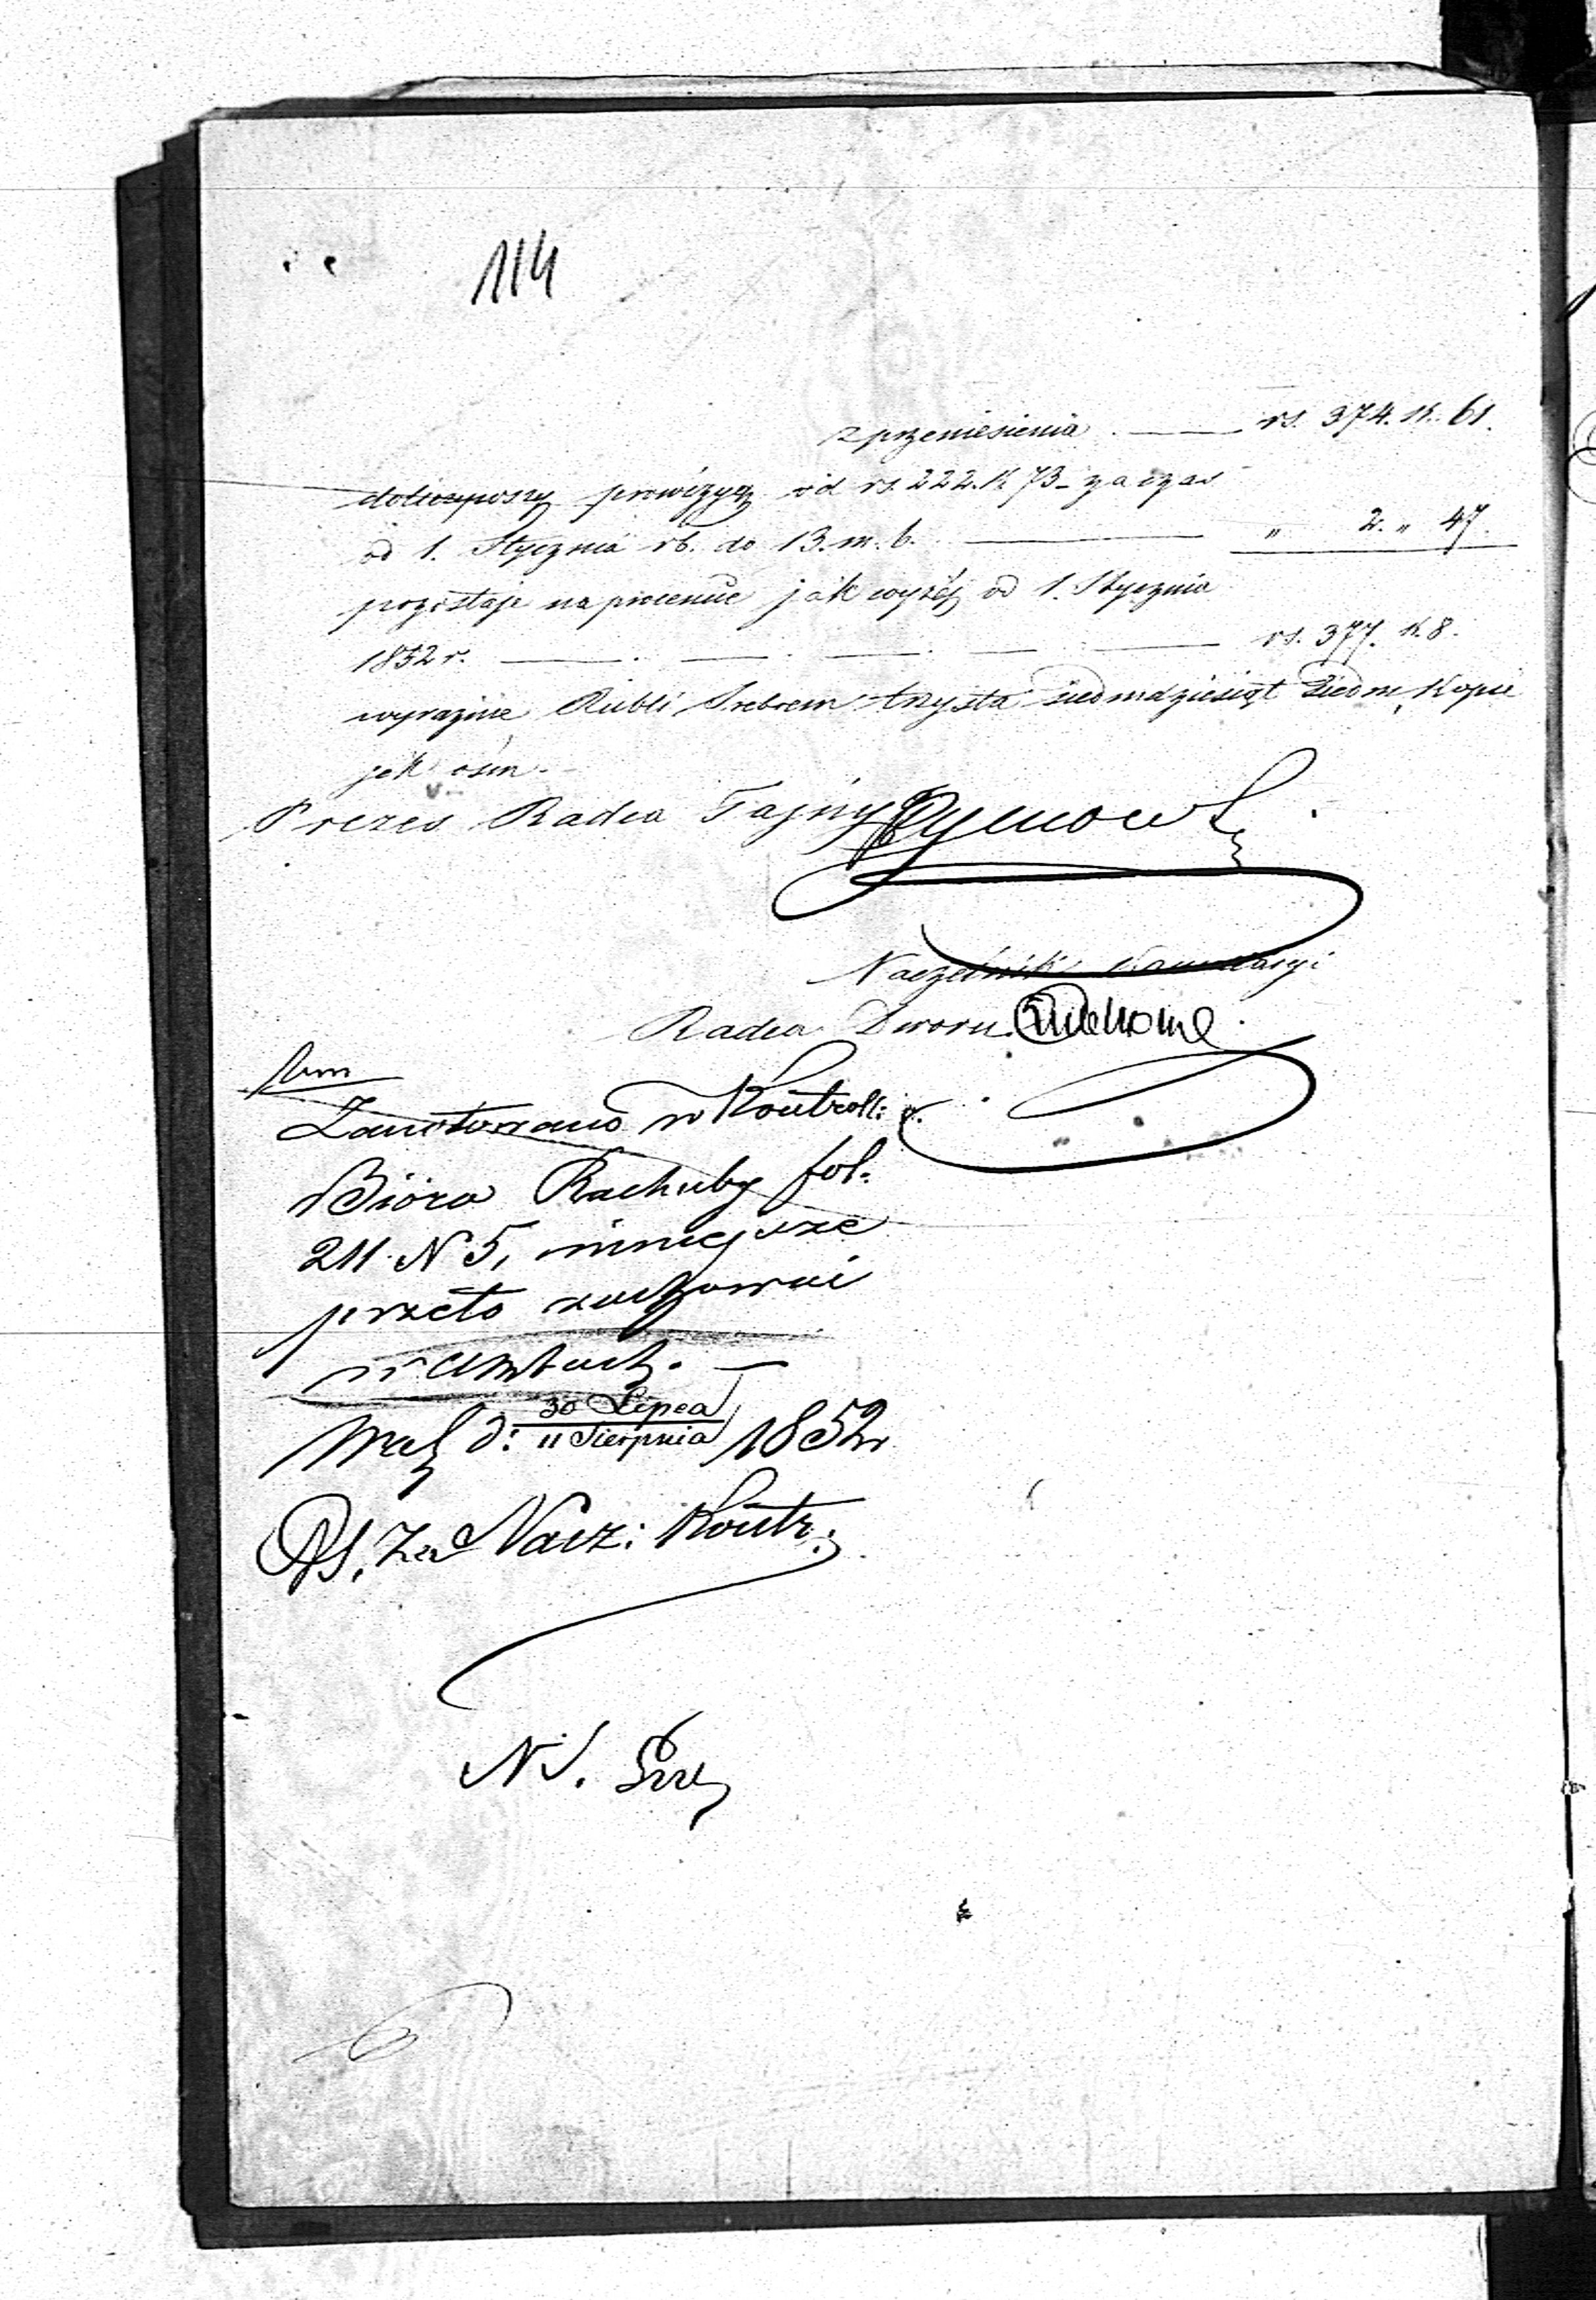 114
z przeniesienia . — rs. 374. k. 61.
doliczywszy prowizyą od rs. 222. k 73 - za czas
od 1. Stycznia rb. do 13. m. b. — " 2. " 47.
pozostaje na procencie jak wyżéj od 1. Stycznia
1852 r. — . — . — . — — rs. 377. k. 8.
wyraźnie Rubli Srebrem trzysta siedmdziesiąt siedm, Kopie
jek ośm. -
Prezes Radca Tajny
Naczelnik Kancellaryi
Radca Dworu
Zanotowano w Kontroli:
Bióra Rachuby fol:
211 N 5, niniejsze
przeto zachować
w Aktach. —
d: 30 Lipca / 11 Sierpnia 1852
Za Nacz: Kontr: